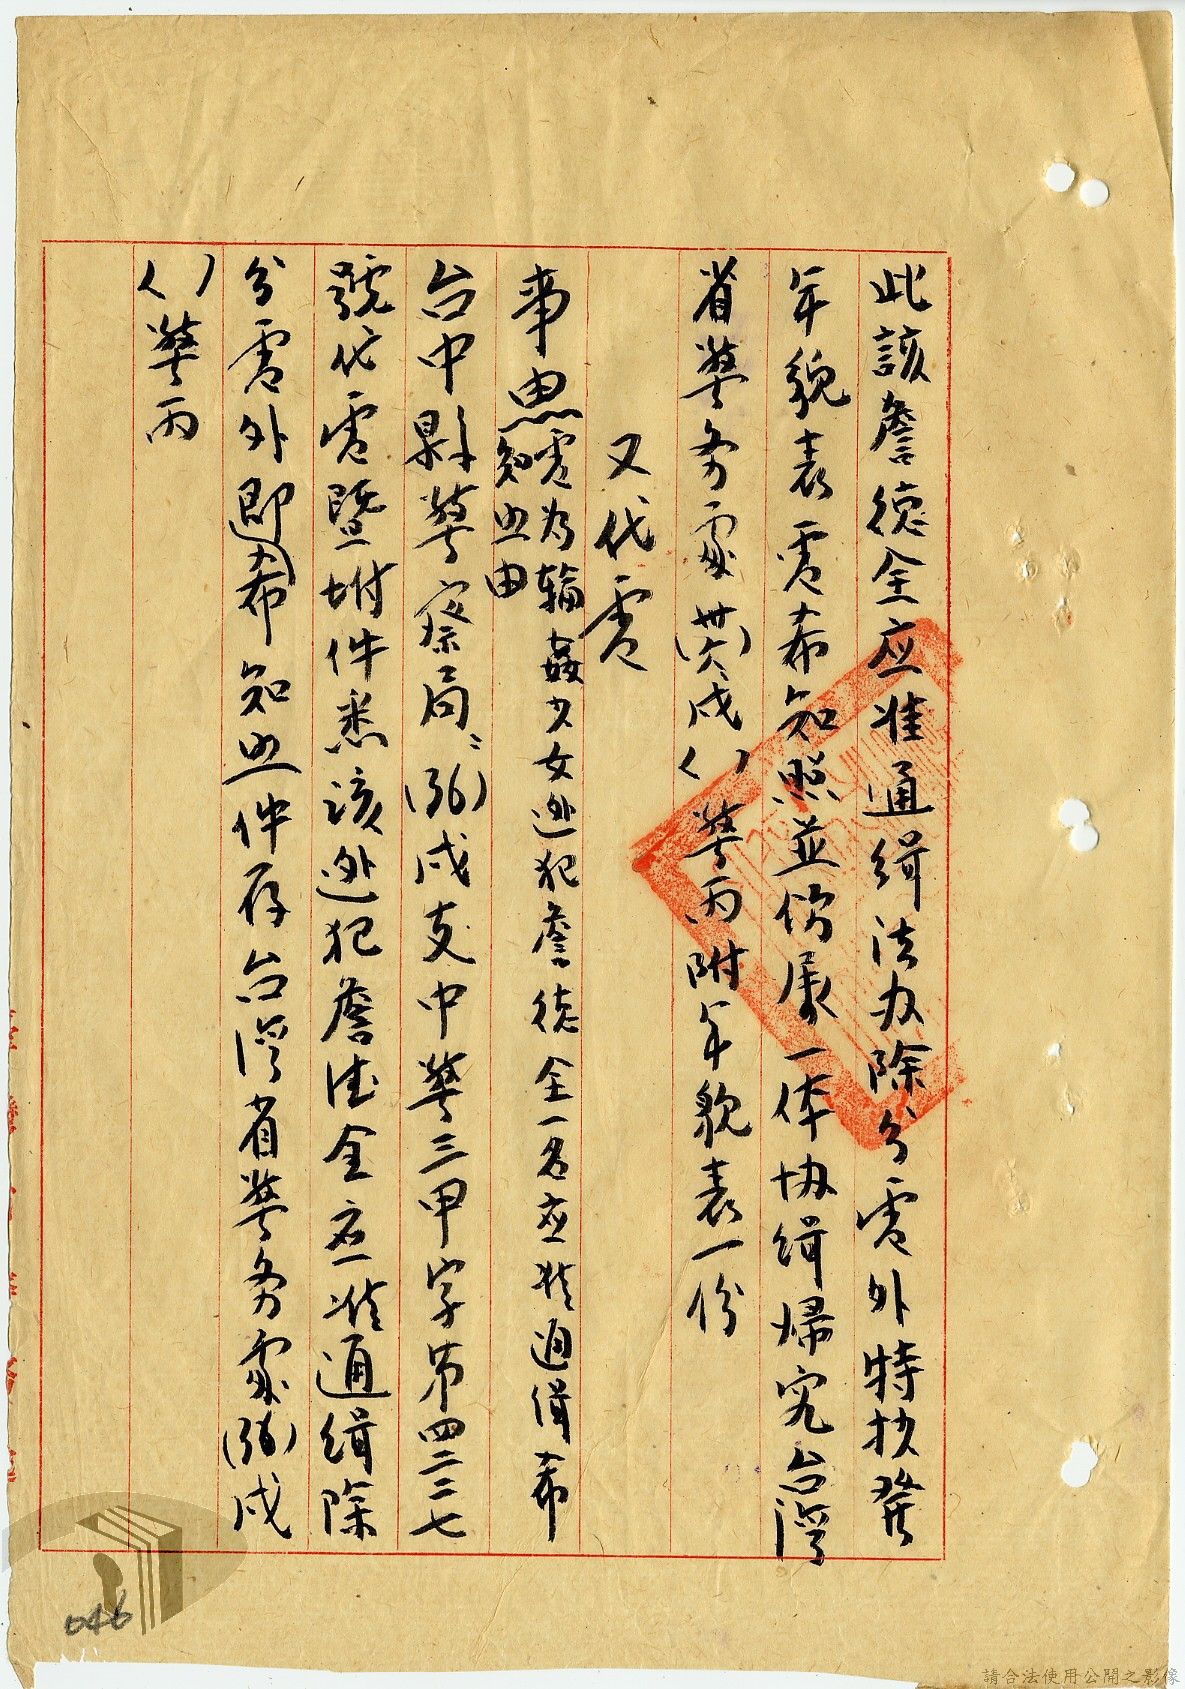 此該詹德全应准通缉法办除分電外特抄發
年貌表電希知照並饬屬一体协缉歸究台湾
省警务處(卅六)戍()警丙附年貌表一份
又代電
事由電为輪姦少女逃犯詹德全一名应准通缉希
知照由
台中縣警察局:(36)戍支中警三甲字第四二三七
號代電暨坿件悉該逃犯詹德全应准通缉除
分電外即希知照件存台湾省警务處(36)戍
()警丙
046
請合法使用公開之影像